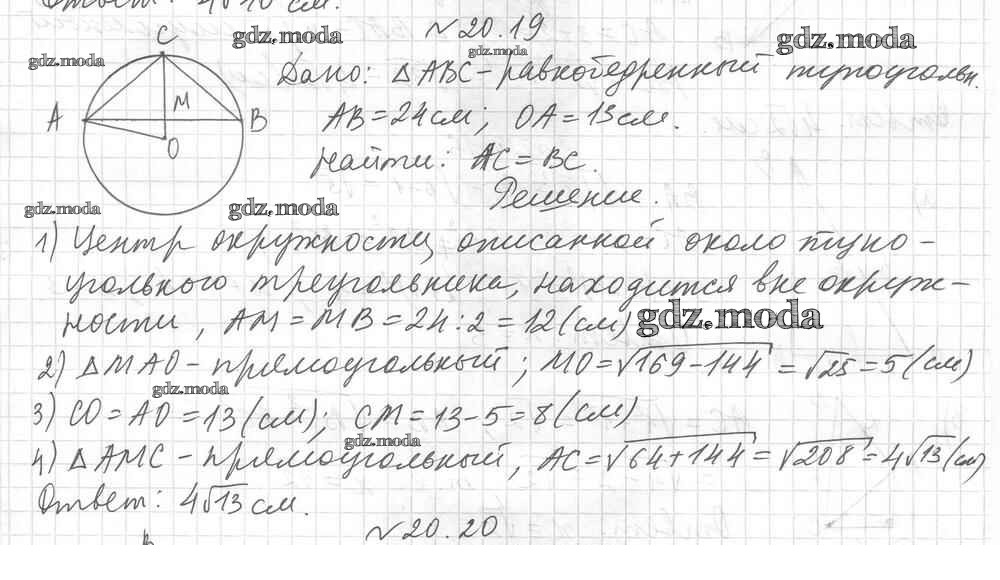 Ответ: 4√10 см.
№20.19
gdz.moda
gdz.moda
gdz.moda
gdz.moda
C
A
M
B
O
Дано: △ABC - равнобедренный тупоугольн.
AB = 24 см; OA = 13 см.
Найти: AC = BC.
Решение.
gdz.moda
gdz.moda
1) Центр окружности, описанной около тупо-
угольного треугольника, находится вне окруж-
ности, AM = MB = 24 : 2 = 12 (см)
gdz.moda
2) △MAO - прямоугольный; MO = √169-144 = √25 = 5 (см)
gdz.moda
3) CO = AO = 13 (см); CM = 13-5 = 8 (см)
gdz.moda
4) △AMC - прямоугольный, AC = √64+144 = √208 = 4√13 (см)
Ответ: 4√13 см.
№20.20